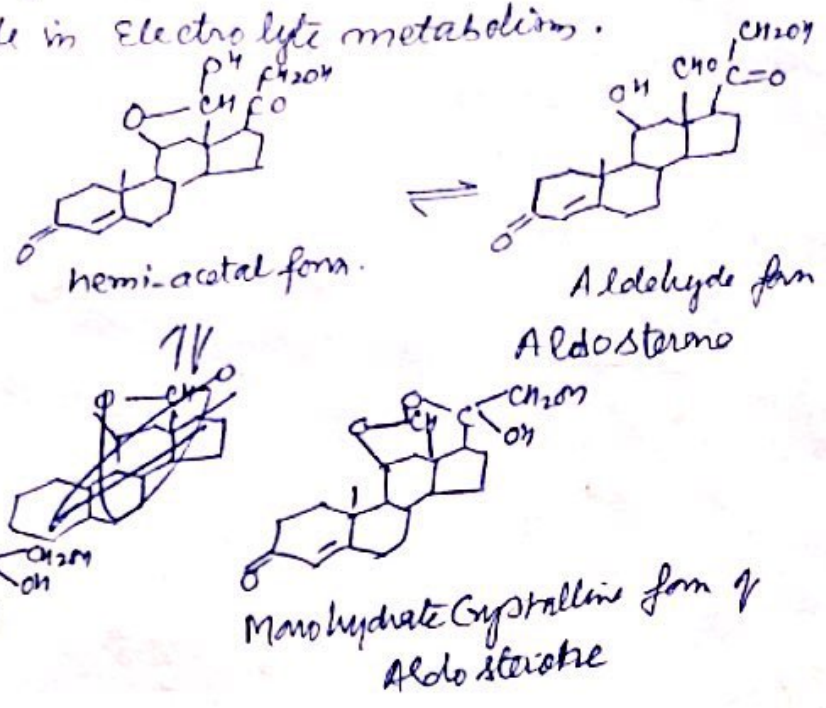 in Electrolyte metabolism.
OH
CH2OH
O
CH
CO
O
hemi-acetal form.
CH2OH
CHO
C=O
OH
O
Aldehyde form
Aldosterone
O
CH
O
CH2OH
OH
O
O
CH
C
CH2OH
OH
O
Monohydrate Crystalline form of
Aldosterone